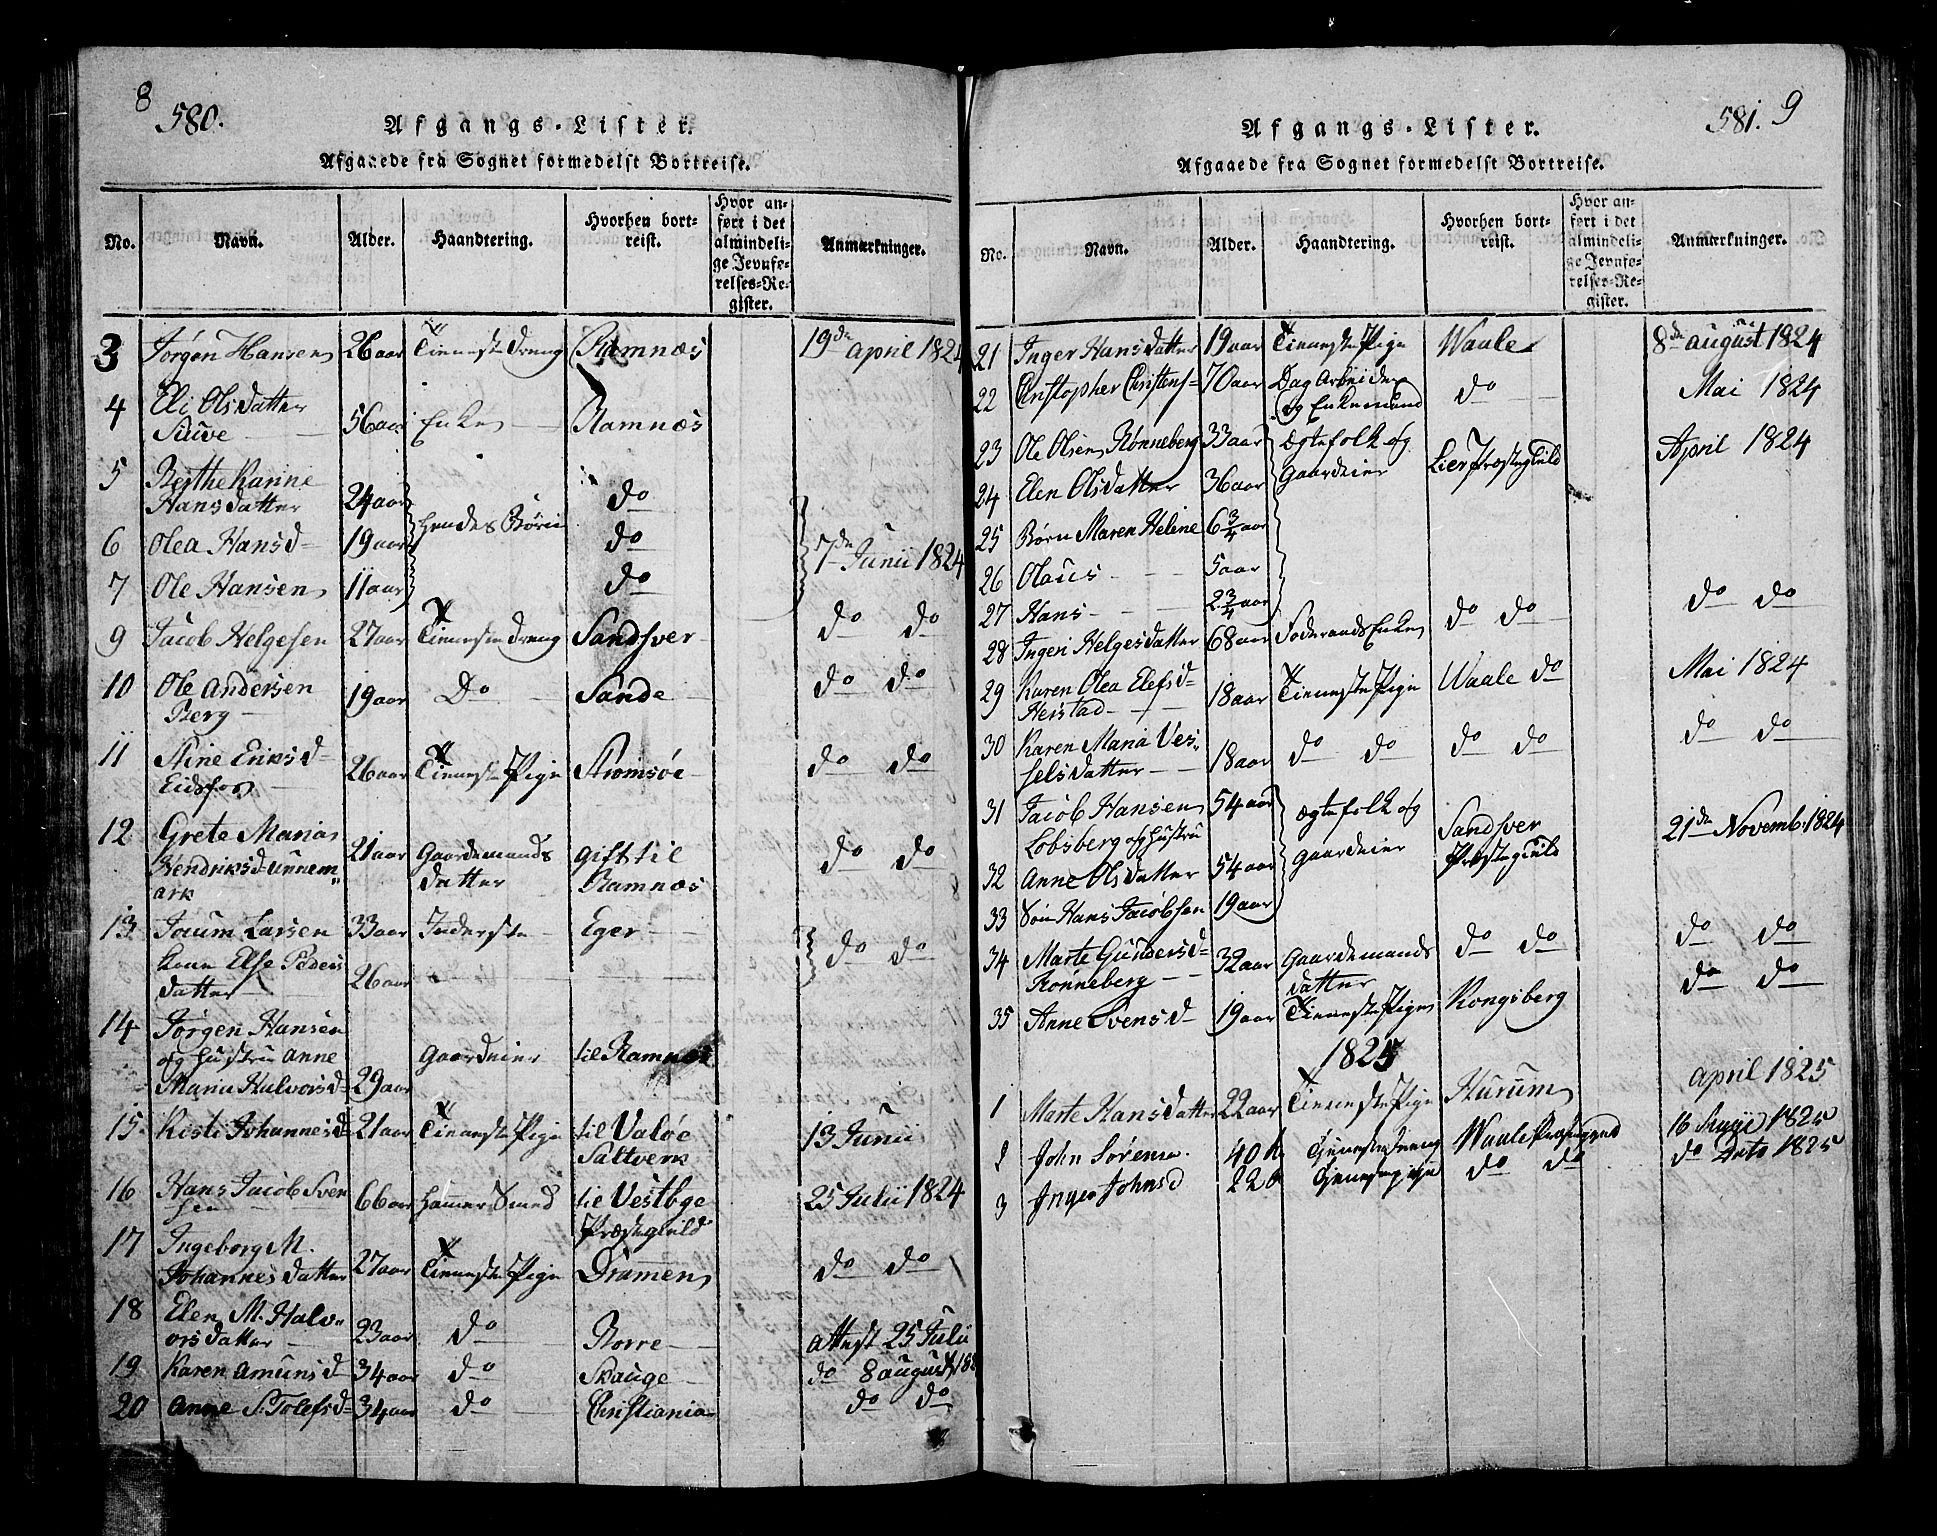 8
580.
Afgangs-Lister.
Afgaaede fra Sognet formedelst Bortreise.
No. Navn. Alder. Haandtering. Hvorhen bortreist. Hvor anført i det almindelige Jevnførelses-Register. Anmærkninger.
3 Jørgen Hansen 26 aar Tieneste Dreng Ramnæs 19de april 1824
4 Eli Olsdatter
Stuve 56 aar Enke Ramnæs
5 Berthe Karine
Hansdatter 24 aar do
hendes Børn
6 Olea Hansd 19 aar do 7de Junii 1824
7 Ole Hansen 11 aar do
9 Jacob Helgesen 27 aar Tieneste Dreng Sandsver do do
10 Ole Andersen
Berg 19 aar Do Sande do do
11 Stine Eriksd
Eidsfos 26 aar Tieneste Pige Strømsøe do do
12 Grete Maria
Hendriksd unnem
ark 21 aar Gaardemands
datter gift til
Ramnæs do do
13 Joeum Larsen 33 aar Inderste Eger do do
kone Else Peders
datter 26 aar
14 Jørgen Hansen
og hustru Anne
Maria Halvorsd 29 aar Gaardeier til Ramnæs
15 Kisti Johannesd 21 aar Tieneste Pige til Valøe
Saltverk 13 Junii
16 Hans Jacob Sven
sen 66 aar Hamer Smed til Vestbye
Præstegield 25 Julii 1824
17 Ingeborg M.
Johannesdatter 27 aar Tieneste Pige Dramen do do
18 Elen M. Halv
orsdatter 23 aar do Borre attest 25 Julii
19 Karen Amunsd 34 aar do Skauge do 8 august 182
20 Anne S. Tolefsd 34 aar do Christiania do do
581. 9
Afgangs-Lister.
Afgaaede fra Sognet formedelst Bortreise.
No. Navn. Alder. Haandtering. Hvorhen bortreist. Hvor anført i det almindelige Jevnførelses-Register. Anmærkninger.
21 Inger Hansdatter 19 aar Tieneste Pige Waale 8de august 1824
22 Christopher Christens= 70 aar Dag Arbeider
og Enkemand do Mai 1824
23 Ole Olsen Rønneberg 33 aar Ægtefolk og
Gaardeier Lier Præstegield April 1824
24 Elen Olsdatter 36 aar
25 Børn Maren Helene 6 3/4 aar
26 Olaus 5 aar
27 Hans 2 3/4 aar
28 Ingeri Helgesdatter 68 aar Foderaads Enke do do do do
29 Karen Olea Elefsd
Heistad 18 aar Tieneste Pige Waale do Mai 1824
30 Karen Maria Ves
selsdatter 18 aar do do do do do do
31 Jacob Hansen 54 aar
Lobsberg og hustru Ægtefolk og
Gaardeier Sandsver
Præstegield 21de Novemb. 1824
32 Anne Olsdatter 54 aar
33 Søn Hans Jacobsen 19 aar
34 Marte Gundersd
Rønneberg 32 aar Gaardemands
datter do do do do
35 Anne Svensd 19 aar Tieneste Pige Kongsberg do do
1825
1 Marte Hansdatter 22 aar Tieneste Pige Hurum april 1825
2 John Sørensen 40 Tjenestedreng Waale Præstegjeld 16 1825
3 Inger Johnsd 22 Tjenestepige do do do Dato 1825